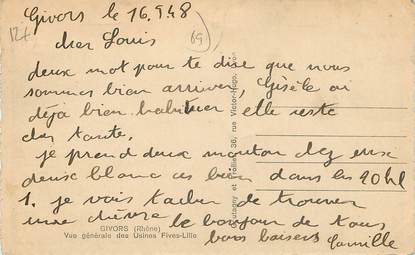 Givors le 16.9.48
69
cher Louis
deux mot pour te dire que nous
sommes bien arriver, Gisèle ai
déjà bien habituer elle reste
chez tante.
je prend deux mouton chez eux
deux blanc ces bien dans les 20 kl
1. je vais tacher de trouver
une chèvre le bonjour de tous
bons baisers Camille
GIVORS (Rhône)
Vue générale des Usines Fives-Lille
36, rue Victor-Hugo,